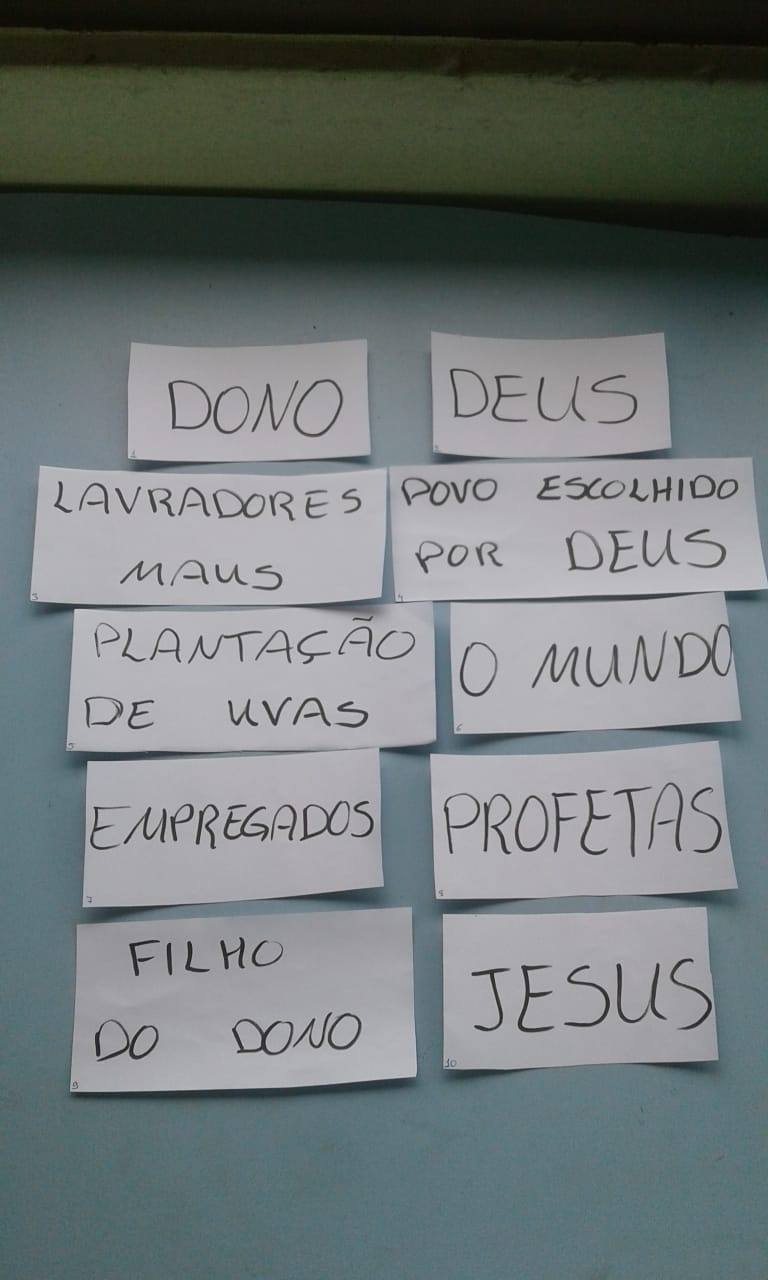 DONO
1
DEUS
2
LAVRADORES
MAUS
3
POVO ESCOLHIDO
POR DEUS
4
PLANTAÇÃO
DE UVAS
5
O MUNDO
6
EMPREGADOS
7
PROFETAS
8
FILHO
DO DONO
9
JESUS
10